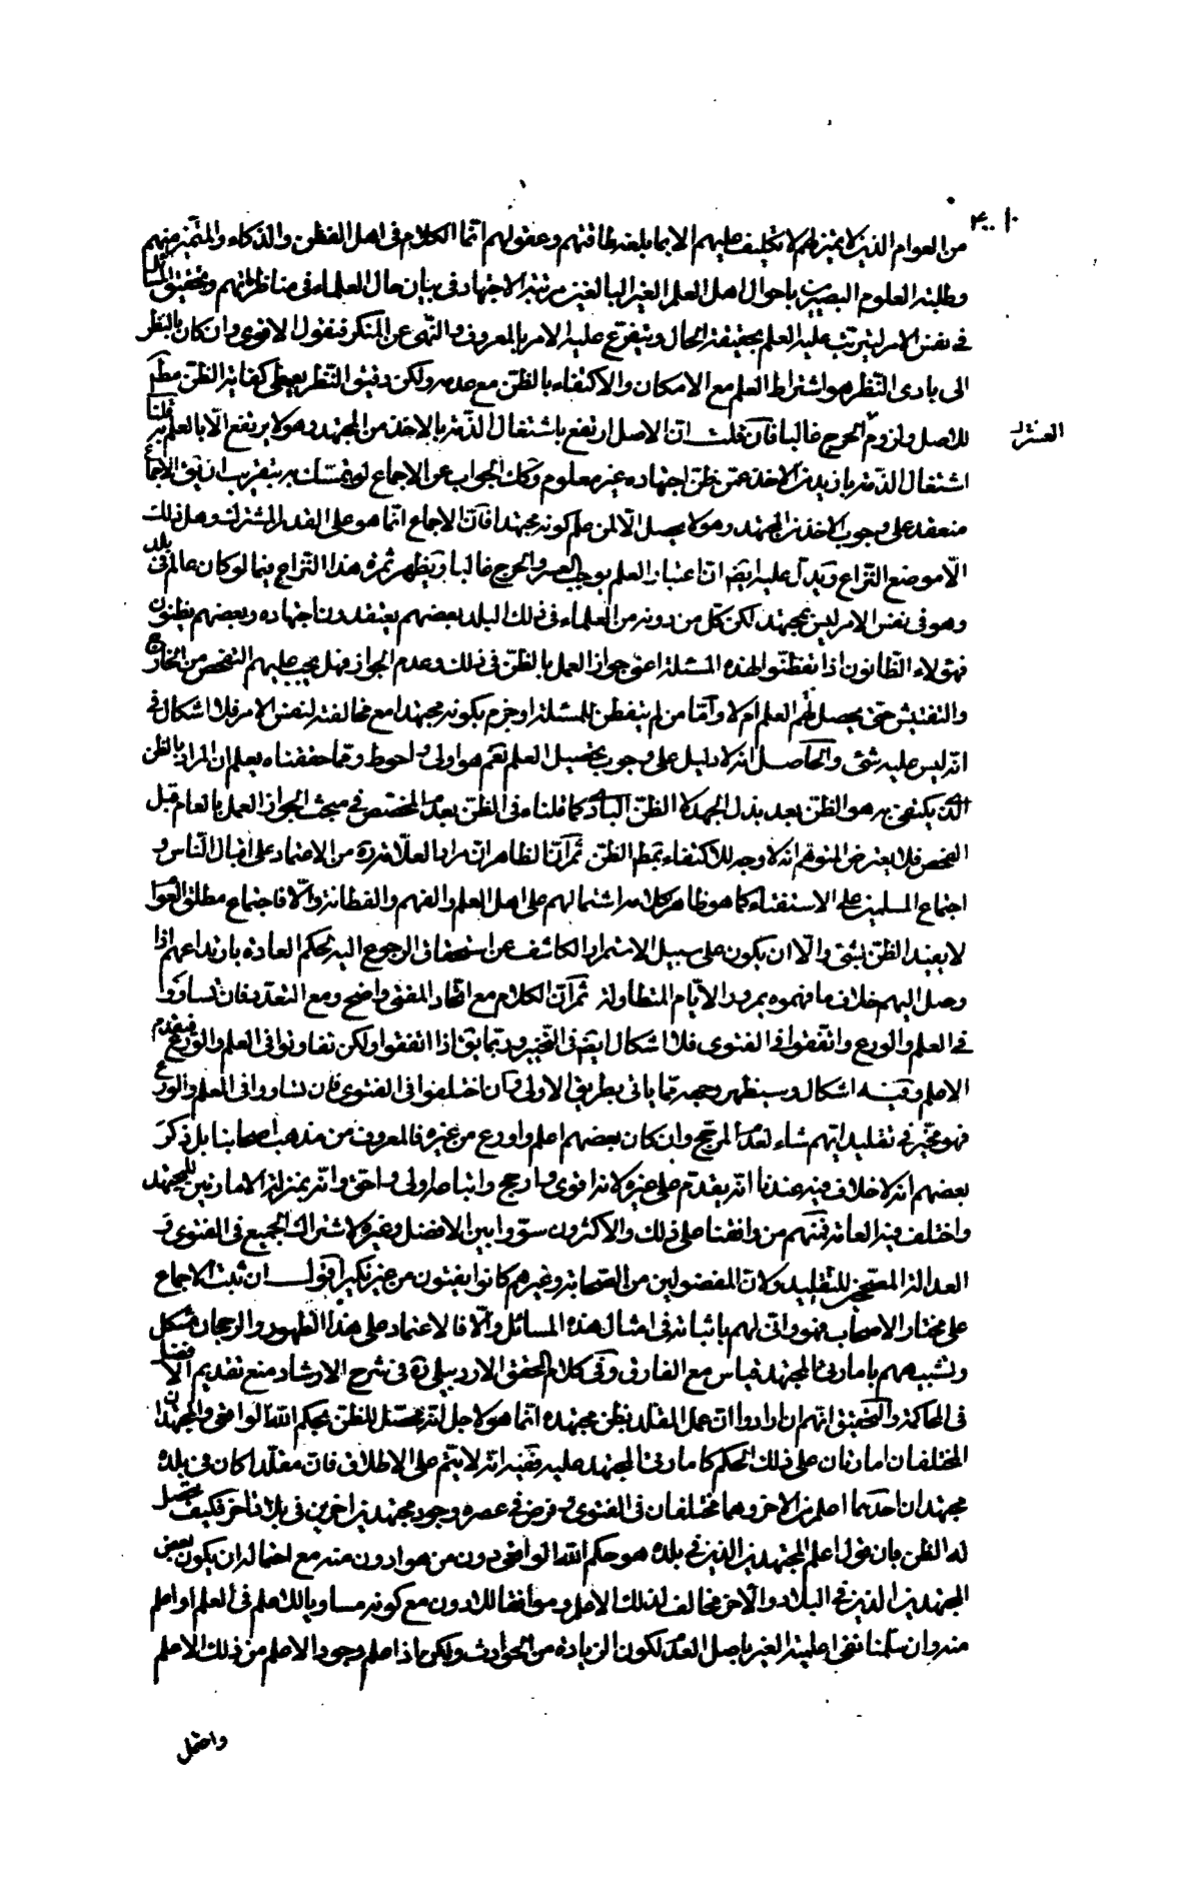 من العوام الذين لا يتميز لهم لا تكليف عليهم الا بما بلغه طاقتهم وعقولهم انما الكلام فى اهل الفطن والذكاء والمتميز منهم
وطلبة العلوم البصيرين باحوال اهل العلم الغير البالغين مرتبة الاجتهاد فى بيان حال العلماء فى مناظراتهم وتحقيق المسائل
فى نفس الامر ليترتب عليه العلم بحقيقة الحال ويتفرع عليه الامر بالمعروف والنهى عن المنكر فنقول الاقوى وان كان بالنظر
الى بادى النظر هو اشتراط العلم مع الامكان والاكتفاء بالظن مع عدمه ولكن دقيق النظر يعطى كفاية الظن مطم
للاصل ولزوم العسر والحرج غالبا فان قلت ان الاصل ارتفع باشتغال الذمة بالاخذ من المجتهد وهو لا يرتفع الا بالعلم به قلنا
اشتغال الذمة بازيد من الاخذ عمن ظن اجتهاده غير معلوم وكك الجواب عن الاجماع لو تمسك به بتقريب ان يق الاجماع
منعقد على وجوب الاخذ من المجتهد وهو لا يحصل الا لمن علم كونه مجتهدا فان الاجماع انما هو على القدر المشترك وهل ذلك
الا موضع النزاع ويدل عليه ايضا ان اعتبار العلم يوجب العسر والحرج غالبا ويظهر ثمرة هذا النزاع فيما لو كان عالم فى بلد
وهو فى نفس الامر ليس بمجتهد لكن كل من دونه من العلماء فى ذلك البلد بعضهم يعتقدون اجتهاده وبعضهم يظنون
فهؤلاء الظانون اذا تفطنوا لهذه المسئلة اعنى جواز العمل بالظن فى ذلك وعدم الجواز فهل يجب عليهم التفحص من الخارج
والتفتيش حتى يحصل لهم العلم ام لا واما من لم يتفطن للمسئلة او جزم بكونه مجتهدا مع مخالفته لنفس الامر فلا اشكال فى
انه ليس عليه شئ والحاصل انه لا دليل على وجوب تحصيل العلم نعم هو اولى واحوط ومما حققناه يعلم ان المراد بالظن
الذى يكتفى به هو الظن بعد بذل الجهد لا الظن البادى كما قلناه فى الظن بعدم المخصص فى مبحث الجواز العمل بالعام قبل
الفحص فلا يعترض المتوهم انه لا وجه للاكتفاء بمطلق الظن ثم ان الظاهر ان مراد العلامة ره من الاعتماد على اقبال الناس و
اجتماع المسلمين على الاستفتاء كما هو ظاهر كلامه اشتمالهم على اهل العلم والفهم والفطانة والا فاجتماع مطلق العوام
لا يفيد الظن بشئ والا ان يكون على سبيل الاستمرار الكاشف عن استحقاق الرجوع اليه بحكم العادة بارتداعهم اذا
وصل اليهم خلاف ما فهموه بمرور الايام المتطاولة ثم ان الكلام مع اتحاد المفتى واضح ومع التعدد فان تساووا
فى العلم والورع واتفقوا فى الفتوى فلا اشكال ايضا فى التخيير وربما يق اذا اتفقوا ولكن تفاوتوا فى العلم والورع فيقدم
الاعلم وفيه اشكال وسيظهر وجهه مما ياتى بطريق الاولى وان اختلفوا فى الفتوى فان تساووا فى العلم والورع
فهو مخير فى تقليد ايهم شاء لعدم المرجح وان كان بعضهم اعلم واورع من غيره فالمعروف من مذهب اصحابنا بل ذكر
بعضهم انه لا خلاف فيه عندنا انه يقدم على غيره لانه اقوى وارجح واتباعه اولى واحق وانه بمنزلة الامارتين للمجتهد
واختلف فيه العامة فمنهم من وافقنا على ذلك والاكثرون سووا بين الافضل وغيره لاشتراك الجميع فى الفتوى و
العدالة المصحح للتقليد ولان المفضولين من الصحابة وغيرهم كانوا يفتون من غير نكير اقول ان ثبت الاجماع
على مختار الاصحاب فهو وانى لهم باثباته فى امثال هذه المسائل والا فالاعتماد على هذا الظهور والرجحان مشكل
وتشبيههم بامارتى المجتهد قياس مع الفارق وفى كلام المحقق الاردبيلى ره فى شرح الارشاد منع تقديم الافضل
فى المحاكمة والتحقيق انهم ان ارادوا ان عمل المقلد بظن مجتهده انما هو لاجل انه محصل للظن بحكم الله الواقعى والمجتهدان
المختلفان امارتان على ذلك الحكم كامارتى المجتهد عليه ففيه انه لا يتم على الاطلاق فان مقلدا كان فى بلده
مجتهدان احدهما اعلم من الاخر وهما مختلفان فى الفتوى وفرض فى عصره وجود مجتهدين اخرين فى بلاد اخر فكيف يحصل
له الظن بان قول اعلم المجتهدين الذين فى بلده هو حكم الله الواقعى دون من هو ادون منه مع احتماله ان يكون بعض
المجتهدين الذين فى البلاد الاخر مخالف لذلك الاعلم وموافقا للادون مع كونه مساويا للاعلم فى العلم او اعلم
منه وان سلمنا نفى اعلمية الغير باصل العدم لكون الزيادة من الحوادث ولكن ماذا اعلم وجود الاعلم من ذلك الاعلم
واحتمل